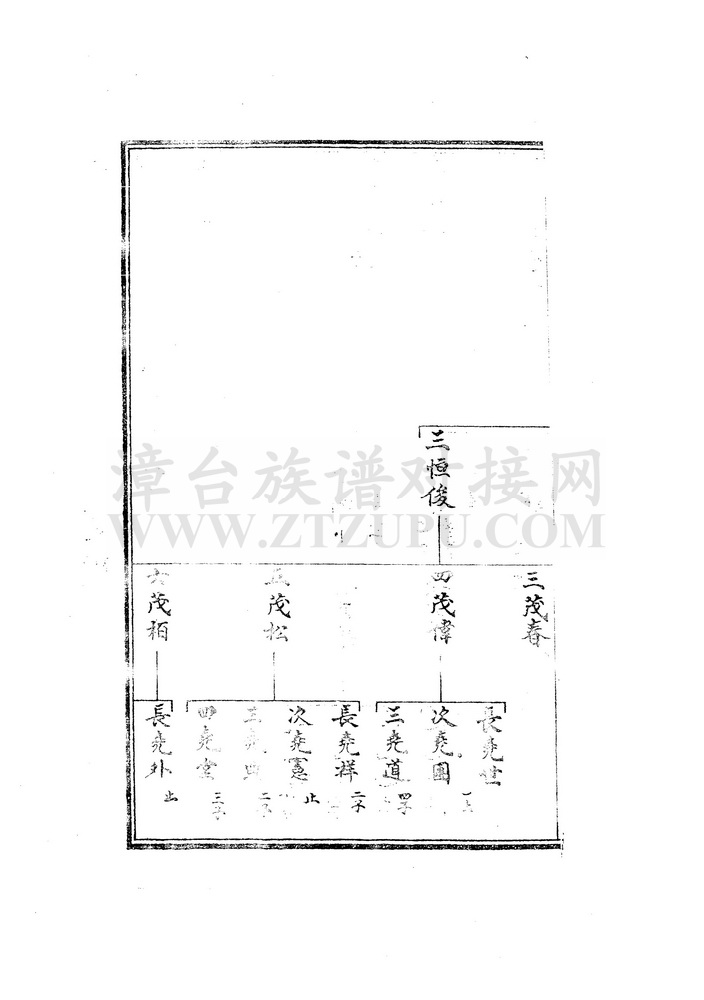 三恒俊
三茂春
四茂偉
五茂松
六茂柏
長堯世
次堯國
三堯道
四子
長堯祥
二子
次堯憲
止
三堯
二子
四堯
三子
長堯外
止
漳台族谱对接网
WWW.ZTZUPU.COM